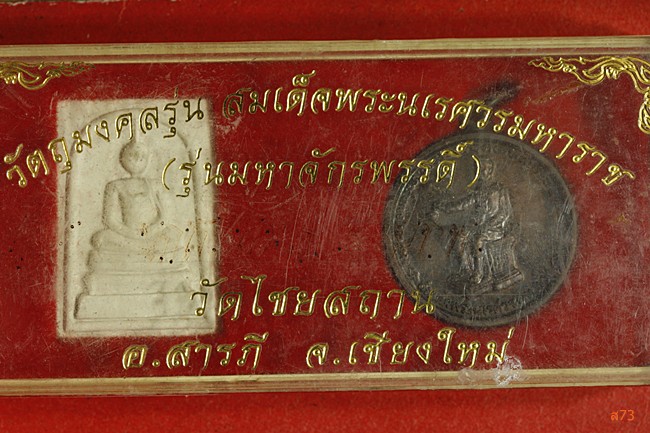 วัตถุมงคลรุ่น สมเด็จพระนเรศวรมหาราช
(รุ่นมหาจักรพรรดิ์)
วัดไชยสถาน
อ.สารภี จ.เชียงใหม่
ส73